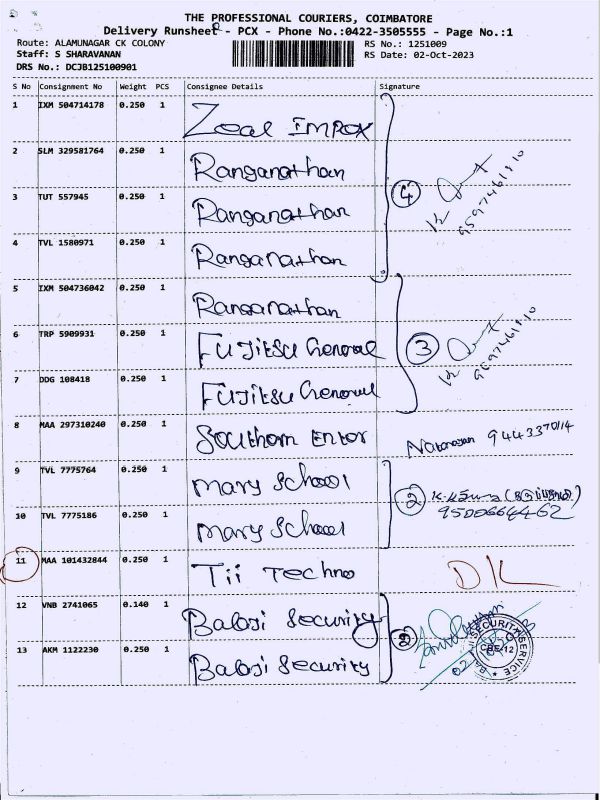 THE PROFESSIONAL COURIERS, COIMBATORE
Delivery Runsheet - PCX - Phone No.:0422-3505555 - Page No.:1
Route: ALAMUNAGAR CK COLONY RS No.: 1251009
Staff: S SHARAVANAN RS Date: 02-Oct-2023
DRS No.: DCJB125100901
S No Consignment No Weight PCS Consignee Details Signature
1 IXM 504714178 0.250 1 Zeal Impex
2 SLM 329581764 0.250 1 Ranganathan
3 TUT 557945 0.250 1 Ranganathan 4
4 TVL 1580971 0.250 1 Ranganathan
5 IXM 504736042 0.250 1 Ranganathan
6 TRP 5909931 0.250 1 Fujitsu General 3
7 DDG 108418 0.250 1 Fujitsu General
8 MAA 297310240 0.250 1 Southern Enter
9 TVL 7775764 0.250 1 Mary School 2
10 TVL 7775186 0.250 1 Mary School 9500664462
11 MAA 101432844 0.250 1 Tii Techno DL
12 VNB 2741065 0.140 1 Balaji Security 2
13 AKM 1122230 0.250 1 Balaji Security
SECURITY SERVICE
CBE-12